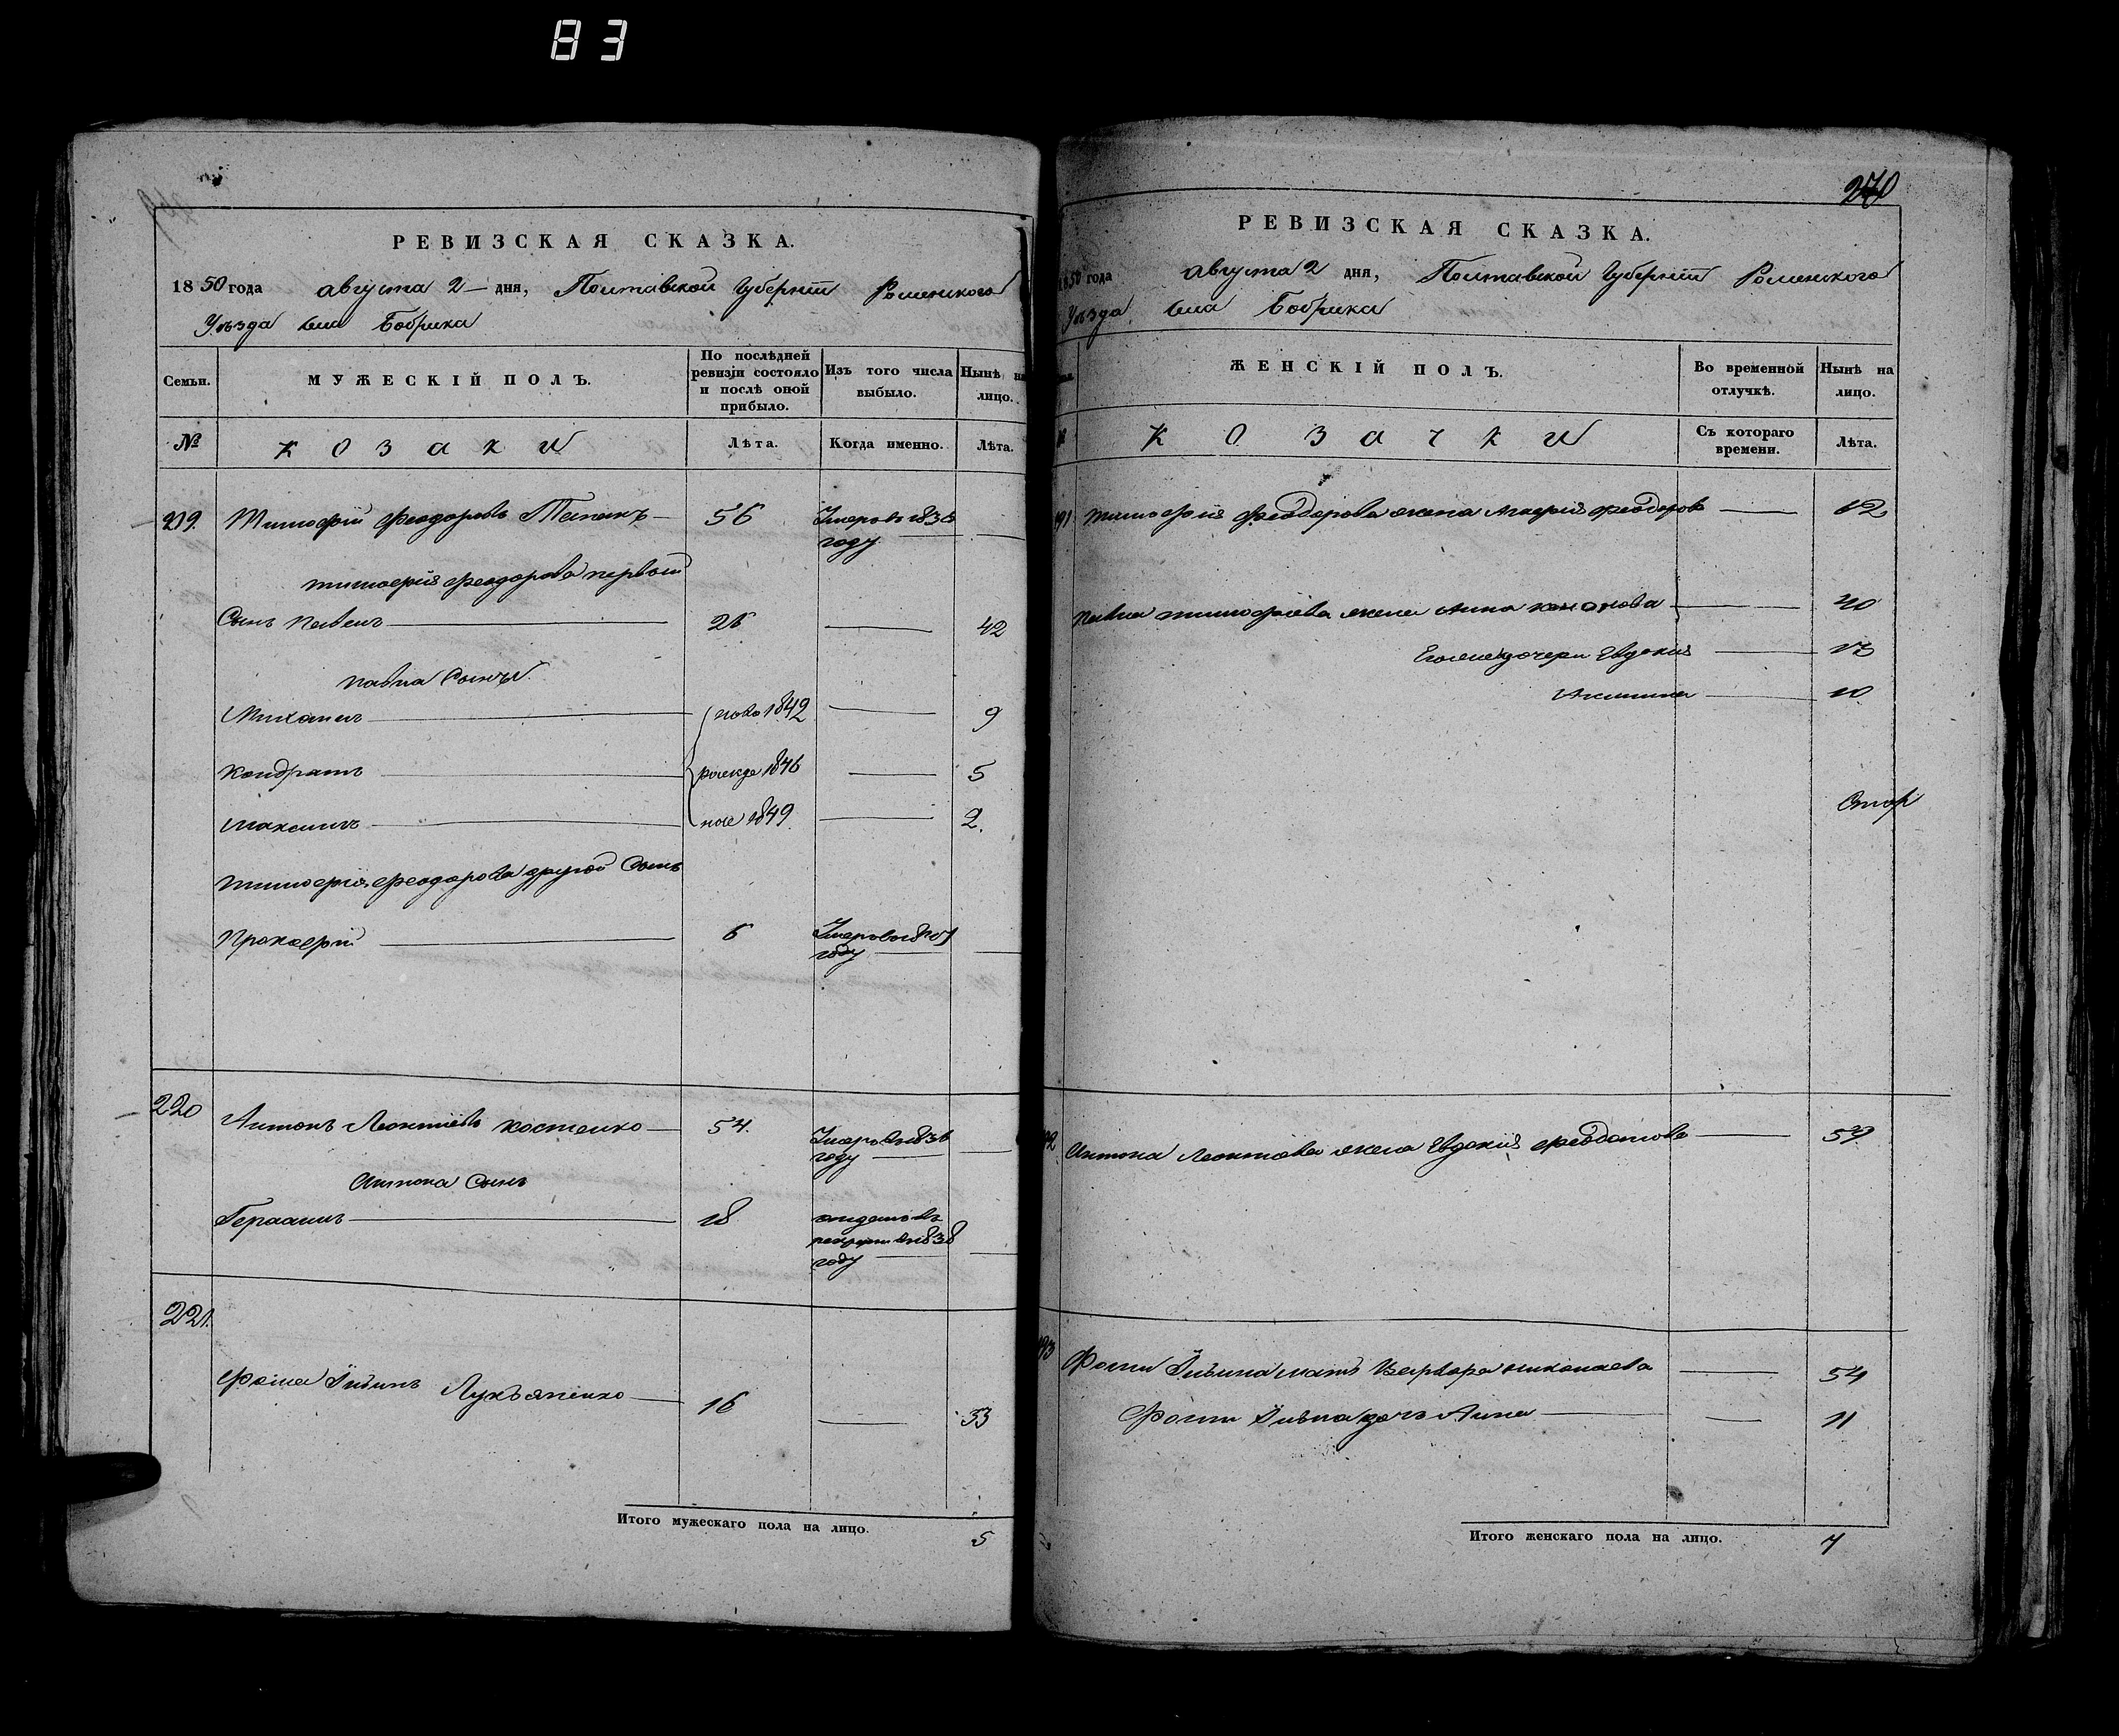 83
РЕВИЗСКАЯ СКАЗКА.
1850 года августа 2 дня, Полтавской Губернiи Роменского
Уѣзда села Бобрика
Семьи.
МУЖЕСКІЙ ПОЛЪ.
По послѣдней ревизіи состояло и послѣ оной прибыло.
Изъ того числа выбыло.
Нынѣ на лицо.
№
козаки
Лѣта.
Когда именно.
Лѣта.
219. Тимофій Феодоровъ 56 Умеръ въ 1838
году
Тимофія Феодорова первый
Сынъ Павелъ 26 42
Павла Сыны
Михаилъ ново 1842 9
Кондратъ рожде 1846 5
Максимъ ные 1849 2.
Тимофія Феодорова другой Сынъ
Прокофій 6 Умеръ
году
220 Антонъ Леонтіевъ Костенко 54. Умеръ въ 1836
году
Антона Сынъ
Герасимъ 18 отданъ въ
рекруты въ 1838
году
221. Фома Ильинъ Лукьяненко 16 33
Итого мужескаго пола на лицо. 5
270
РЕВИЗСКАЯ СКАЗКА.
1850 года августа 2 дня, Полтавской Губернiи Роменского
Уѣзда села Бобрика
ЖЕНСКІЙ ПОЛЪ.
Во временной отлучкѣ.
Нынѣ на лицо.
козачки
Съ котораго времени.
Лѣта.
Тимофія Феодорова жена Феодоров
Павла Тимофіева жена Анна Кононова 40
Его же дочери Евдокия 17
Акилина 10
Антона Леонтіева жена Евдокия Феодотова 59
Фомы Ильина мать Варвара Николаева 54
Фомы Ильина дочь Анна 11
Итого женскаго пола на лицо. 7